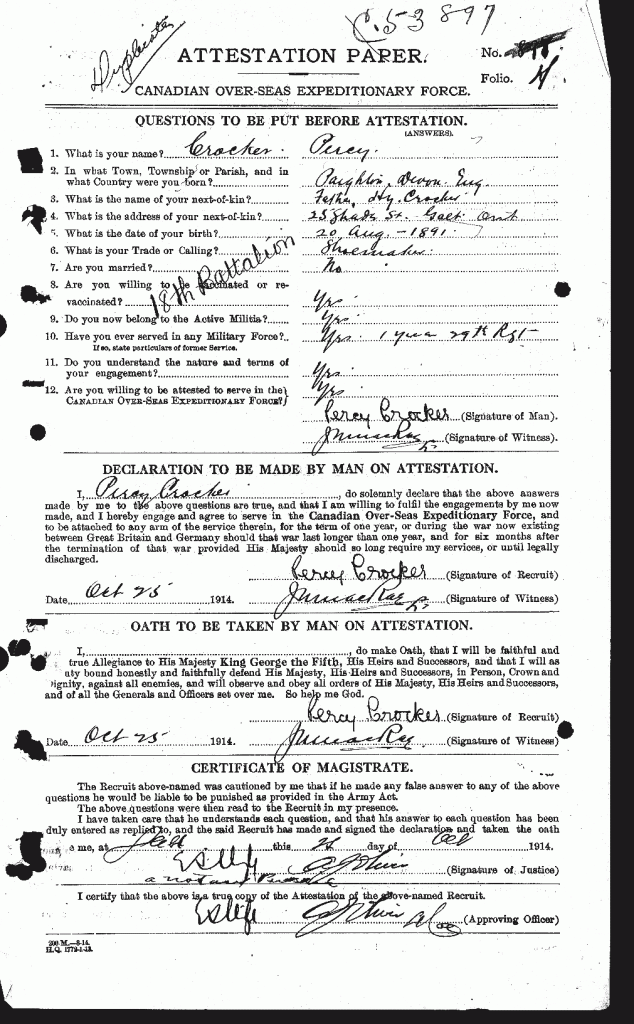 C.53897
Duplicate
ATTESTATION PAPER.
No.
Folio.
CANADIAN OVER-SEAS EXPEDITIONARY FORCE.
QUESTIONS TO BE PUT BEFORE ATTESTATION.
(ANSWERS).
1. What is your name? Crocker. Percy.
2. In what Town, Township or Parish, and in
what Country were you born? Paighton, Devon. Eng
3. What is the name of your next-of-kin? Father, Hy. Crocker
4. What is the address of your next-of-kin? 25 Shade St. Galt Ont
5. What is the date of your birth? 20 Aug - 1891.
6. What is your Trade or Calling? Shoemaker
7. Are you married? No
18th Battalion
8. Are you willing to be vaccinated or re-
vaccinated? Yes
9. Do you now belong to the Active Militia? Yes.
10. Have you ever served in any Military Force? Yes. 1 year 29th Rgt
If so, state particulars of former Service.
11. Do you understand the nature and terms of
your engagement? Yes.
12. Are you willing to be attested to serve in the Yes
CANADIAN OVER-SEAS EXPEDITIONARY FORCE?
Percy Crocker (Signature of Man).
(Signature of Witness).
DECLARATION TO BE MADE BY MAN ON ATTESTATION.
I, Percy Crocker, do solemnly declare that the above answers
made by me to the above questions are true, and that I am willing to fulfil the engagements by me now
made, and I hereby engage and agree to serve in the Canadian Over-Seas Expeditionary Force, and
to be attached to any arm of the service therein, for the term of one year, or during the war now existing
between Great Britain and Germany should that war last longer than one year, and for six months after
the termination of that war provided His Majesty should so long require my services, or until legally
discharged.
Percy Crocker (Signature of Recruit)
Date Oct 25 1914. (Signature of Witness)
OATH TO BE TAKEN BY MAN ON ATTESTATION.
I, , do make Oath, that I will be faithful and
true Allegiance to His Majesty King George the Fifth, His Heirs and Successors, and that I will as
uty bound honestly and faithfully defend His Majesty, His Heirs and Successors, in Person, Crown and
Dignity, against all enemies, and will observe and obey all orders of His Majesty, His Heirs and Successors,
and of all the Generals and Officers set over me. So help me God.
Percy Crocker (Signature of Recruit)
Date Oct 25 1914. (Signature of Witness)
CERTIFICATE OF MAGISTRATE.
The Recruit above-named was cautioned by me that if he made any false answer to any of the above
questions he would be liable to be punished as provided in the Army Act.
The above questions were then read to the Recruit in my presence.
I have taken care that he understands each question, and that his answer to each question has been
duly entered as replied to, and the said Recruit has made and signed the declaration and taken the oath
e me, at Galt this day of Oct 1914.
(Signature of Justice)
I certify that the above is a true copy of the Attestation of the above-named Recruit.
(Approving Officer)
200 M.—8-14.
H.Q. 1772-1-13.